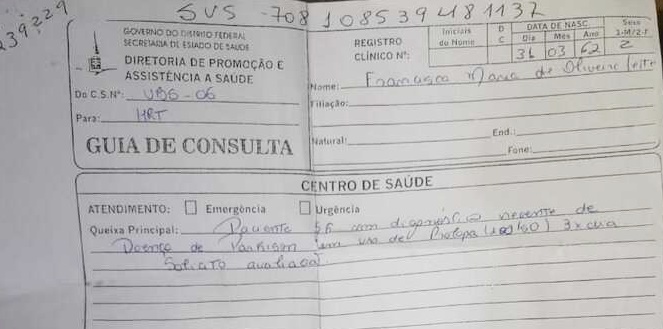 239229
SUS -708108539481137
GOVERNO DO DISTRITO FEDERAL
SECRETARIA DE ESTADO DE SAÚDE
DIRETORIA DE PROMOÇÃO E
ASSISTÊNCIA A SAÚDE
Do C.S.Nº: UBS-06
Para: HRT
GUIA DE CONSULTA
REGISTRO
CLÍNICO Nº:
Iniciais
do Nome
D
C
DATA DE NASC.
Dia Mês Ano
31 03 62
Sexo
1-M/2-F
2
Nome: Francisca Maria de Oliveira Leite
Filiação:
Natural: End.:
Fone:
CENTRO DE SAÚDE
ATENDIMENTO: Emergência Urgência
Queixa Principal: Paciente com diagnóstico recente de
Doença de Parkison em uso de Prolopa (100/50) 3x dia
Solicito avaliação